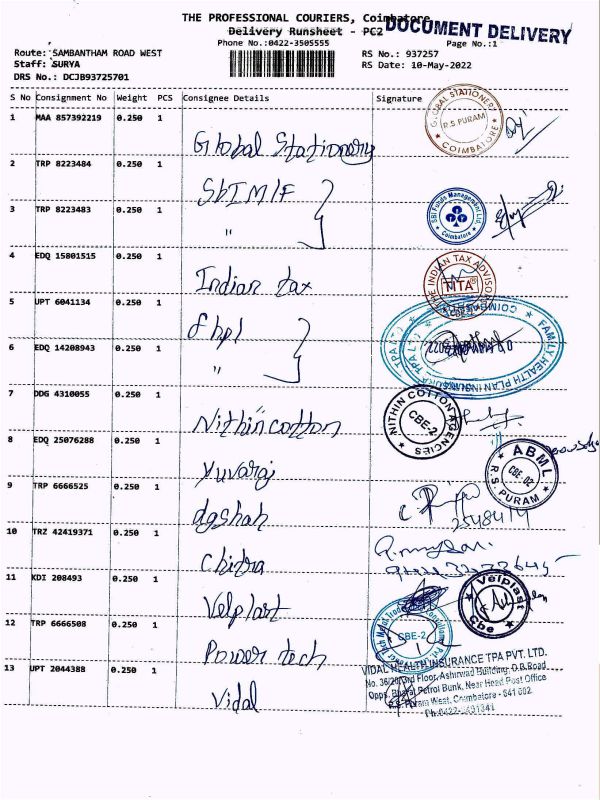 THE PROFESSIONAL COURIERS, Coimbatore
DOCUMENT DELIVERY
Delivery Runsheet - PC2
Phone No.:0422-3505555
Page No.:1
Route: SAMBANTHAM ROAD WEST
RS No.: 937257
Staff: SURYA
RS Date: 10-May-2022
DRS No.: DCJB93725701
S No Consignment No Weight PCS Consignee Details Signature
1 MAA 857392219 0.250 1
Global Stationery
GLOBAL STATIONERY
R.S PURAM
COIMBATORE
2 TRP 8223484 0.250 1
SbIMIF
3 TRP 8223483 0.250 1
"
SBI Funds Management Ltd
Coimbatore
4 EDQ 15801515 0.250 1
Indian tax
THE INDIAN TAX ADVISOR
TITA
5 UPT 6041134 0.250 1
fhpl
6 EDQ 14208943 0.250 1
"
FAMILY HEALTH PLAN INSURANCE TPA
COIMBATORE
7 DDG 4310055 0.250 1
Nithin cotton
NITHIN COTTON AGENCIES
CBE-2
8 EDQ 25076288 0.250 1
Yuvaraj
ABML
CBE 02
R.S. PURAM
9 TRP 6666525 0.250 1
dgshah
10 TRZ 42419371 0.250 1
Chitra
11 KDI 208493 0.250 1
Velplast
Velplast
Cbe
12 TRP 6666508 0.250 1
Power tech
CBE-2
13 UPT 2044388 0.250 1
Vidal
VIDAL HEALTH INSURANCE TPA PVT. LTD.
3rd Floor, Ashirwad Building, D.B.Road
Opps. Bharat Petrol Bunk, Near Head Post Office
R.S. Puram West, Coimbatore - 641 002